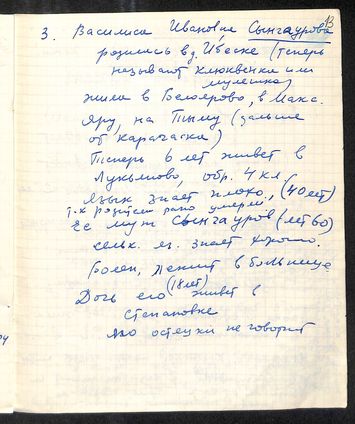 13
3. Василиса Ивановна Сынгаурова
родилась в д. Ивеске (теперь
называют Клюквенка или
Мулешка)
жила в Белоярово, в Макс.
Яру, на Тыму (дальше
от Карачаска)
Теперь 6 лет живет в
Лукьяново, обр. 4 кл.
Язык знает плохо, (40 лет)
т.к. родители рано умерли
Её муж Сынгауров (лет 60)
сельк. яз. знает хорошо.
Болен, лежит в больнице
(18 лет)
Дочь его живет в
Степановке
по остяцки не говорит